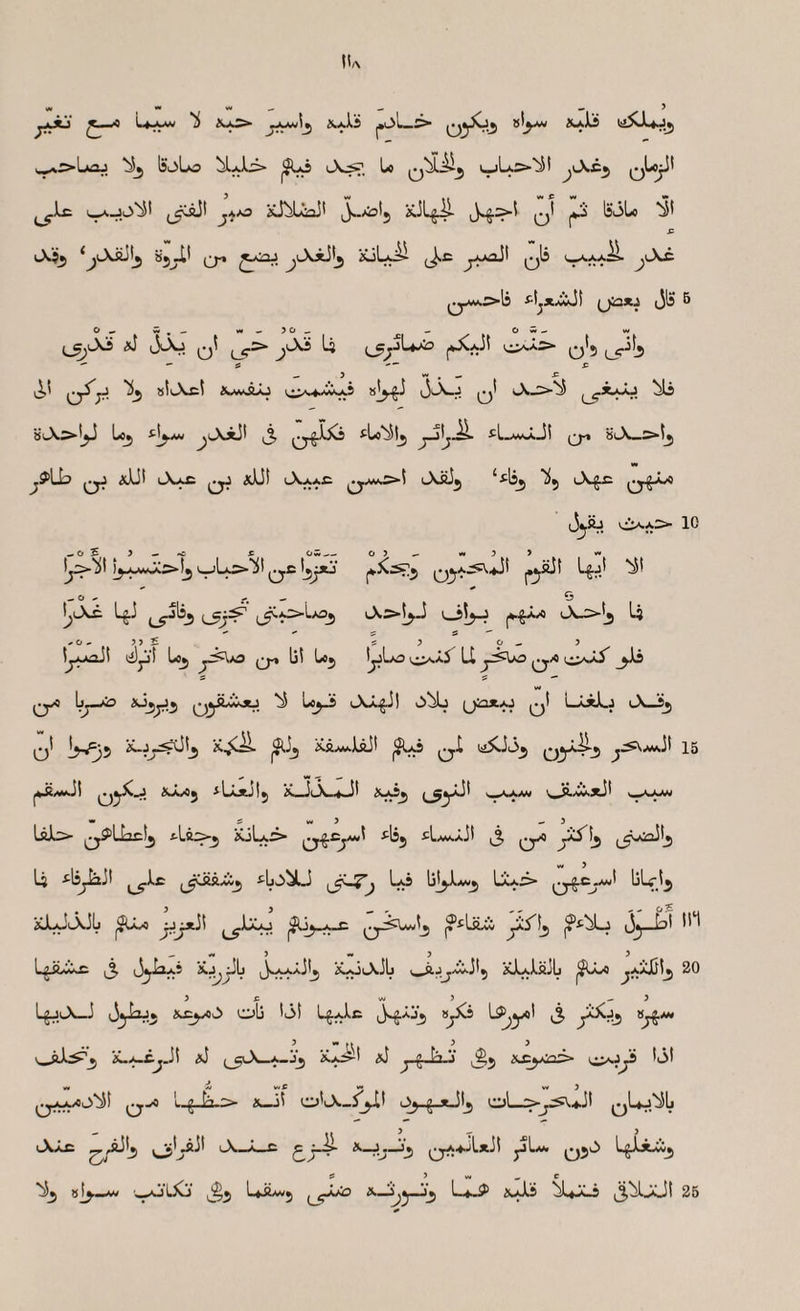 ١١٨
ويملك قلبه سواه ويكون خادم قلبه واسير حبه لا سيّما مع تغيّر
الزمان وغدر الاحباب والخلّان ما يجد فيه خليلا صادقا ولا يصاحب
الّا ماذقا ثم انّ اجهل الجهالة واضلّ الضلالة صبر الفتى الاديب على
غدر حبيب فان الصبر على الخيانة والغدر يضع من المروّة والقدر، وقد
قال بعض الشعراء فاحسن 5
وانّي وان حنّت اليكم ضمائري فما قدر حبّي ان يذلّ له قدري
فلا ينبغي لاحد ان يذلّ لهواه فيشمت بنفسه اعداءه ولا يركن الى
واحدة من النساء الحرائر والاماء فكلّهن في الغدر سواء وما لواحدة
منهن عهد ولا وفاء، ولقد احسن عبيد الله بن عبد الله بن طاهر
حيث يقول 10
الا ايّها القوم المحبّون ويحكم تعزّوا عن الاحباب واحتسبوا الاجرا
فما واحد منهم يواف لواحد لها غدرا
فلو كنت من صخر لما كنت صابرا وما انا من صخر وما اوتي الصبرا
وقد بلغنا ان بعض بلاد الهند قوما لا يعشقون ويرونه ضربا من
السحر والجنون وذلك ان فيهم الفلسفة ولهم الحنكة والتجربة وذكروا ان 15
سبب العشق سبب النوى وفيه المذلّة والعناء ومنه يكون السقم
والضنى واكثر من في النساء وفاء اسرعهن خيانة وجفاء واعطاهن خفا
اسرعهن وسلوانا فيا للادباء على الظرفاء ما
١١٩ اطول بلاءهم واكثر شقاءهم واسخن عيونهم يبتلى العزيز منهم بالذليلة
والكثير منهم بالقليلة والشريف بالدنيّة والنبيل بالزريّة فيطول في عشقها 20
سهره ويكثر في امورها فكره وتنهلّ عليها اذا بانت دموعه ويطول لديها
اذا قربت خضوعه وهي تظهر له المحبّة وتبدي له الرغبة وتحلف
بالايمان المحرجات والعهود المؤكّدات انّه حظّها من الآدميّين
وشغلها دون سائر العالمين وتريه الجزع عند الفراق والفرح عند
التلاق فتملأ قلبه همّا وتورثه ضنى وسقما وهي تكاتب سواه ولا 25